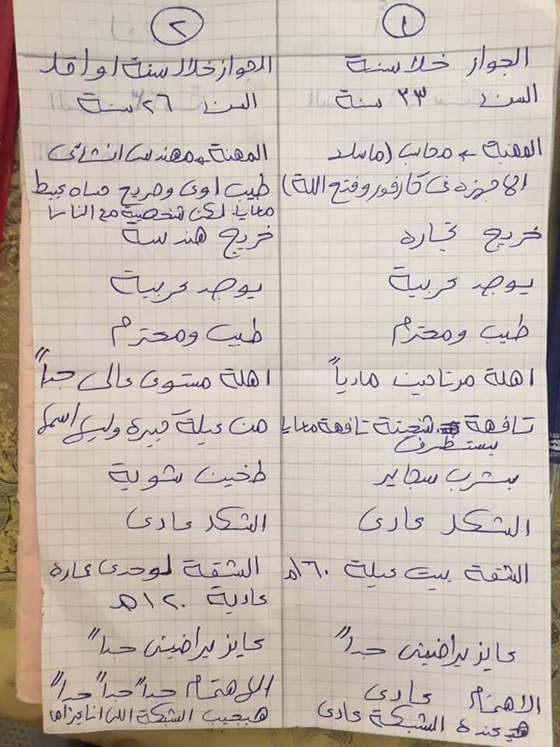 ١
الجواز خلال سنة
السن: ٣٣ سنة
المهنة محاسب (ماسك
الاجهزه فى كارفور وفتح الله)
خريج تجاره
يوجد عربية
طيب ومحترم
اهلة مرتاحين مادياً
تافهة شخصيتة تافهة معايا
بيستظرف
بشرب سجاير
الشكل عادى
الشقة بيت عيلة ١٦٠م
عايز يراضينى جداً
الاهتمام عادى
عنده الشبكة عادى
٢
الجواز خلال سنة او اقل
السن: ٢٦ سنة
المهنة مهندس انشائى
طيب اوى وصريح عبيط
معايا لكن شخصية مع الناس
خريج هندسة
يوجد عربية
طيب ومحترم
اهلة مستوى عالى جداً
من عيلة كبيرة وليها اسمها
طخين شوية
الشكل عادى
الشقة لوحدى عمارة
عادية ١٢٠م
عايز يراضينى جداً
الاهتمام جداً جداً جداً
هيجيب الشبكة اللى انا عيزاها